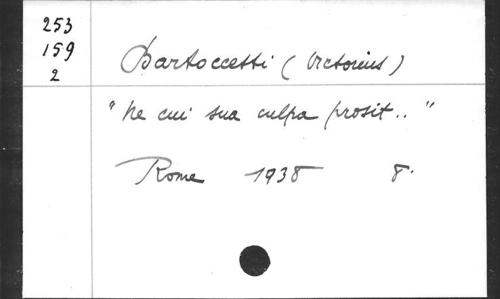 253
159
2
Bartoccetti (Victorius)
"Ne cui sua culpa prosit.."
Rome 1938 8°